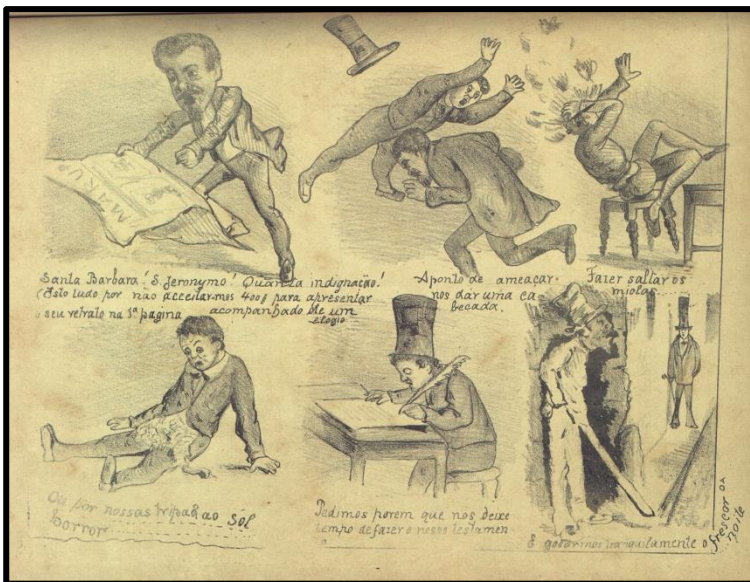 MARUI
Santa Barbara! S. Jeronymo! Quanta indignação!
(Isto tudo por não acceitar-mos 400$ para apresentar
o seu retrato na 1ª pagina acompanhado de um
elogio
Aponto de ameaçar-
nos dar uma ca
beçada.
Fazer saltar os
miolos
Ou por nossas tripas ao sol
horror
Pedimos porem que nos deixe
tempo de fazer o nosso testamen
E gosarmos tranquilamente o frescor da
noite